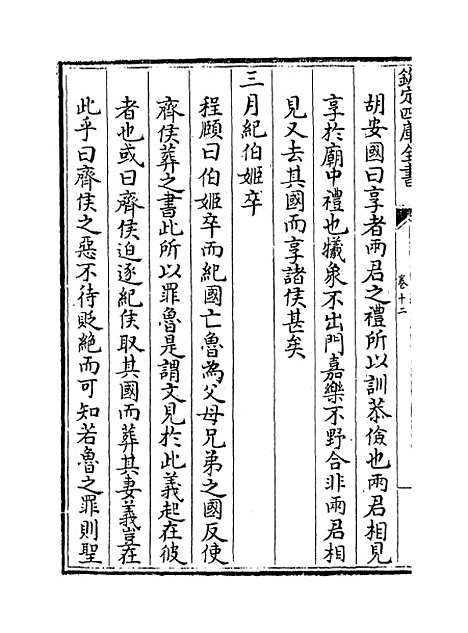 欽定四庫全書
卷十二
胡安國曰享者兩君之禮所以訓恭儉也兩君相見
享於廟中禮也犧象不出門嘉樂不野合非兩君相
見又去其國而享諸侯甚矣
三月紀伯姬卒
程頤曰伯姬卒而紀國亡魯為父母兄弟之國反使
齊侯葬之書此所以罪魯是謂文見於此義起在彼
者也或曰齊侯迫逐紀侯取其國而葬其妻義豈在
此乎曰齊侯之惡不待貶絶而可知若魯之罪則聖